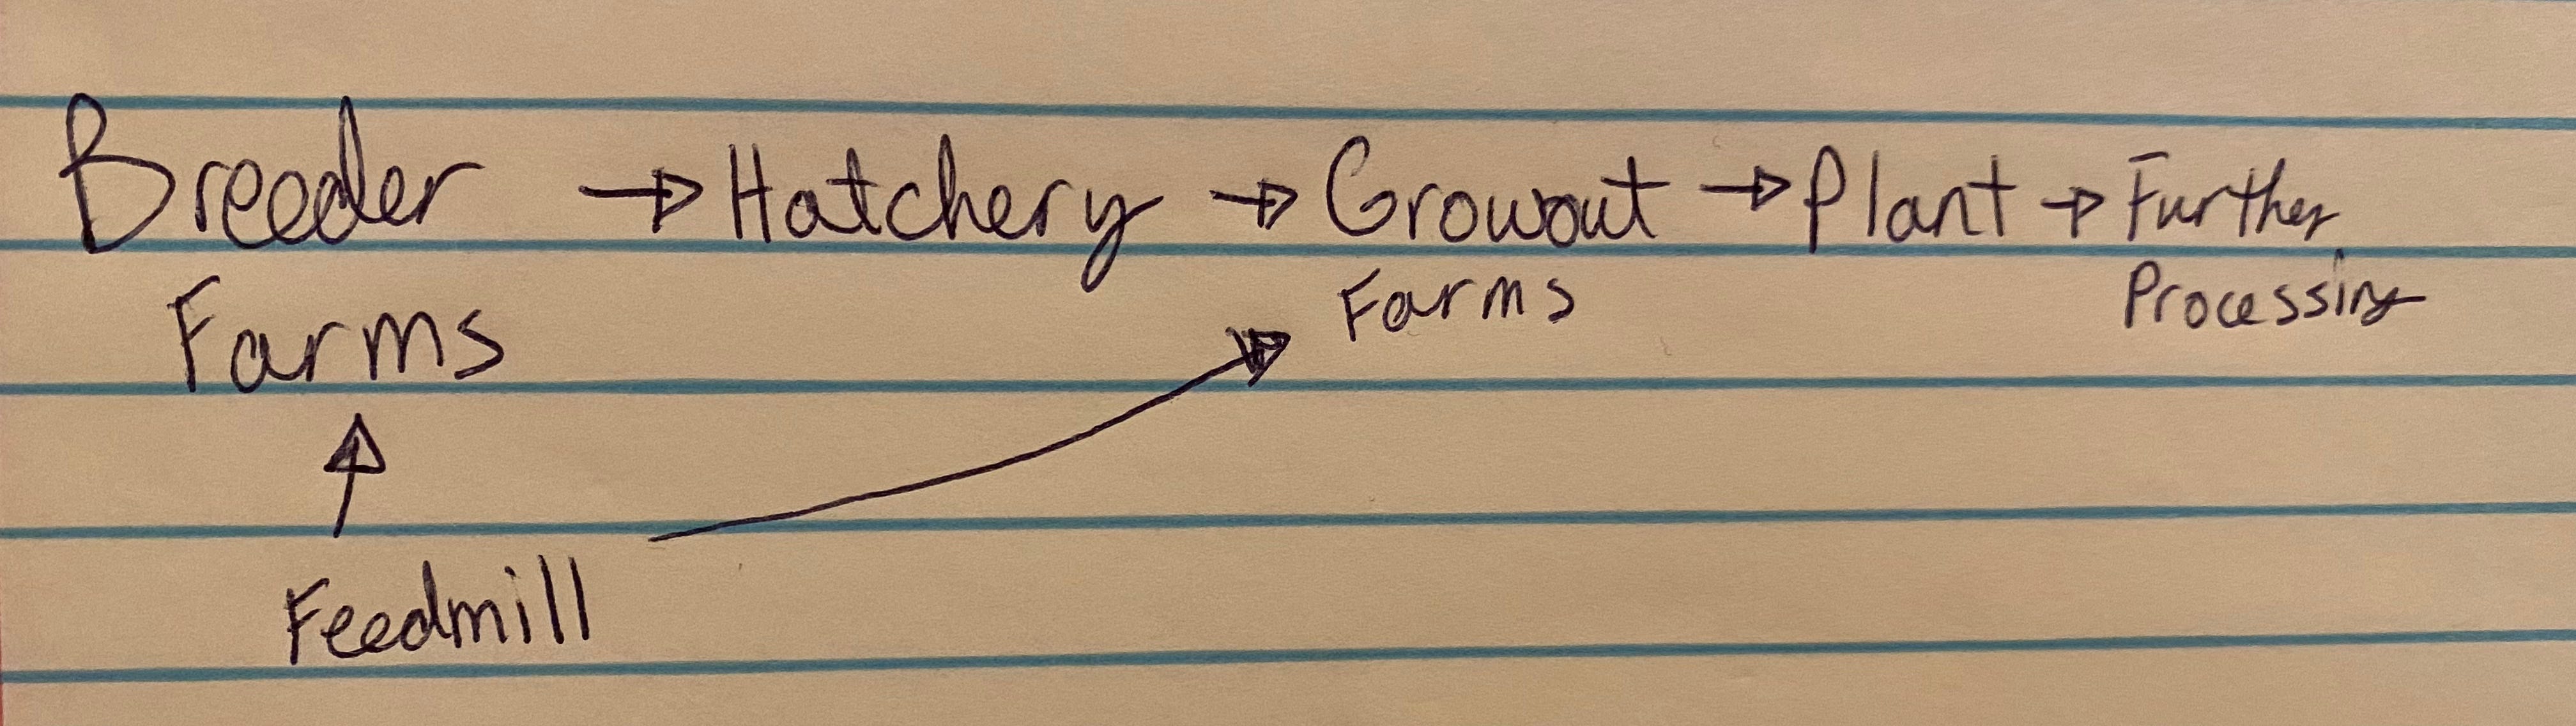 Breeder → Hatchery → Growout → Plant → Further
Farms Farms Processing
Feedmill